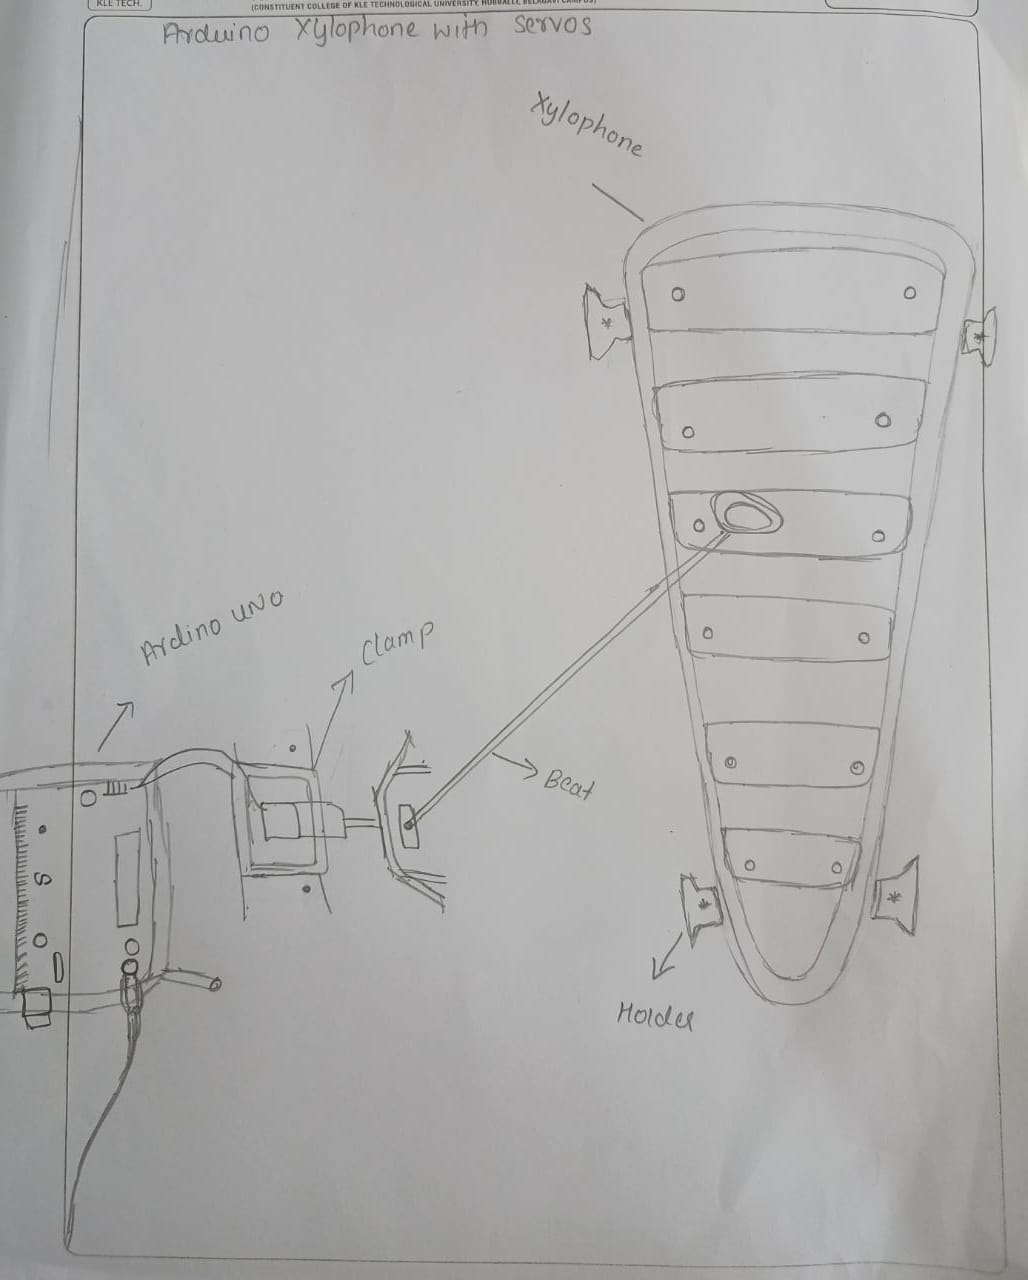 KLE TECH.
(CONSTITUENT COLLEGE OF KLE TECHNOLOGICAL UNIVERSITY, HUBBALLI, BELAGAVI CAMPUS)
Arduino Xylophone with servos
Xylophone
Ardino UNO
Clamp
Beat
Holder